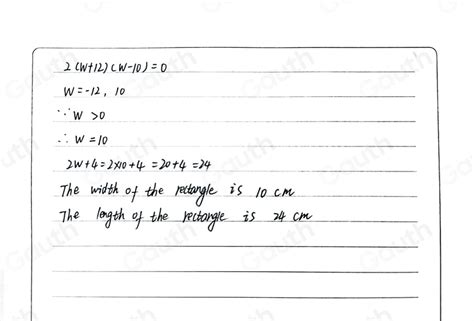 2(W+12)(W-10)=0
W=-12, 10
∵W >0
∴ W =10
2W+4=2×10+4 =20+4 =24
The width of the rectangle is 10 cm
The length of the rectangle is 24 cm